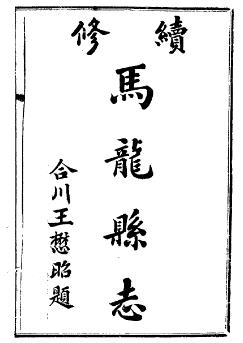 續修
馬龍縣志
合川王懋昭題